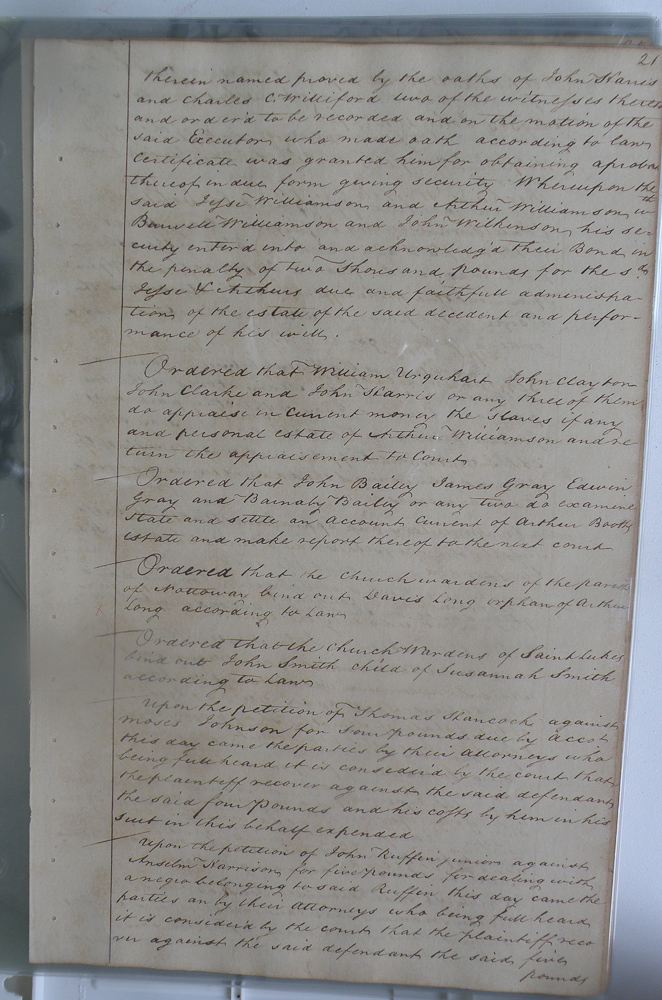 21
therein named proved by the oaths of John Harris
and Charles C. Williford two of the witnesses thereto
and order'd to be recorded and on the motion of the
said Executors who made oath according to law
Certificate was granted him for obtaining a probat
thereof in due form giving security Whereupon the
said Jesse Williamson and Arthur Williamson wth
Burwell Williamson and John Wilkinson his se-
curity enter'd into and acknowledg'd their Bond in
the penalty of two Thousand pounds for the sd.
Jesse & Arthurs due and faithfull administra-
tion of the estate of the said decedent and perfor-
mance of his will.
Ordered that William Urquhart John Clayton
John Clarke and John Harris or any three of them
do appraise in current money the slaves if any
and personal estate of Arthur Williamson and re
turn the appraisement to Court
Ordered that John Bailey James Gray Edwin
Gray and Barnaby Bailey or any two do examine
State and settle an account Current of Arthur Booths
estate and make report thereof to the next court
Ordered that the Church wardens of the parish
of Nottoway bind out Davis Long orphan of Arthur
Long according to Law
Ordered that the Church Wardens of Saint Lukes
bind out John Smith child of Susannah Smith
according to Law
Upon the petition of Thomas Hancock against
Moses Johnson for four pounds due by accot
this day came the parties by their attorneys who
being full heard it is consider'd by the court that
the plaintiff recover against the said defendant
the said four pounds and his costs by him in his
suit in this behalf expended
Upon the petition of John Ruffin junior against
Anselm Harrison for five pounds for dealing with
a negro belonging to said Ruffin this day came the
parties an by their attorneys who being full heard
it is consider'd by the court that the plaintiff reco
ver against the said defendant the said five
pounds